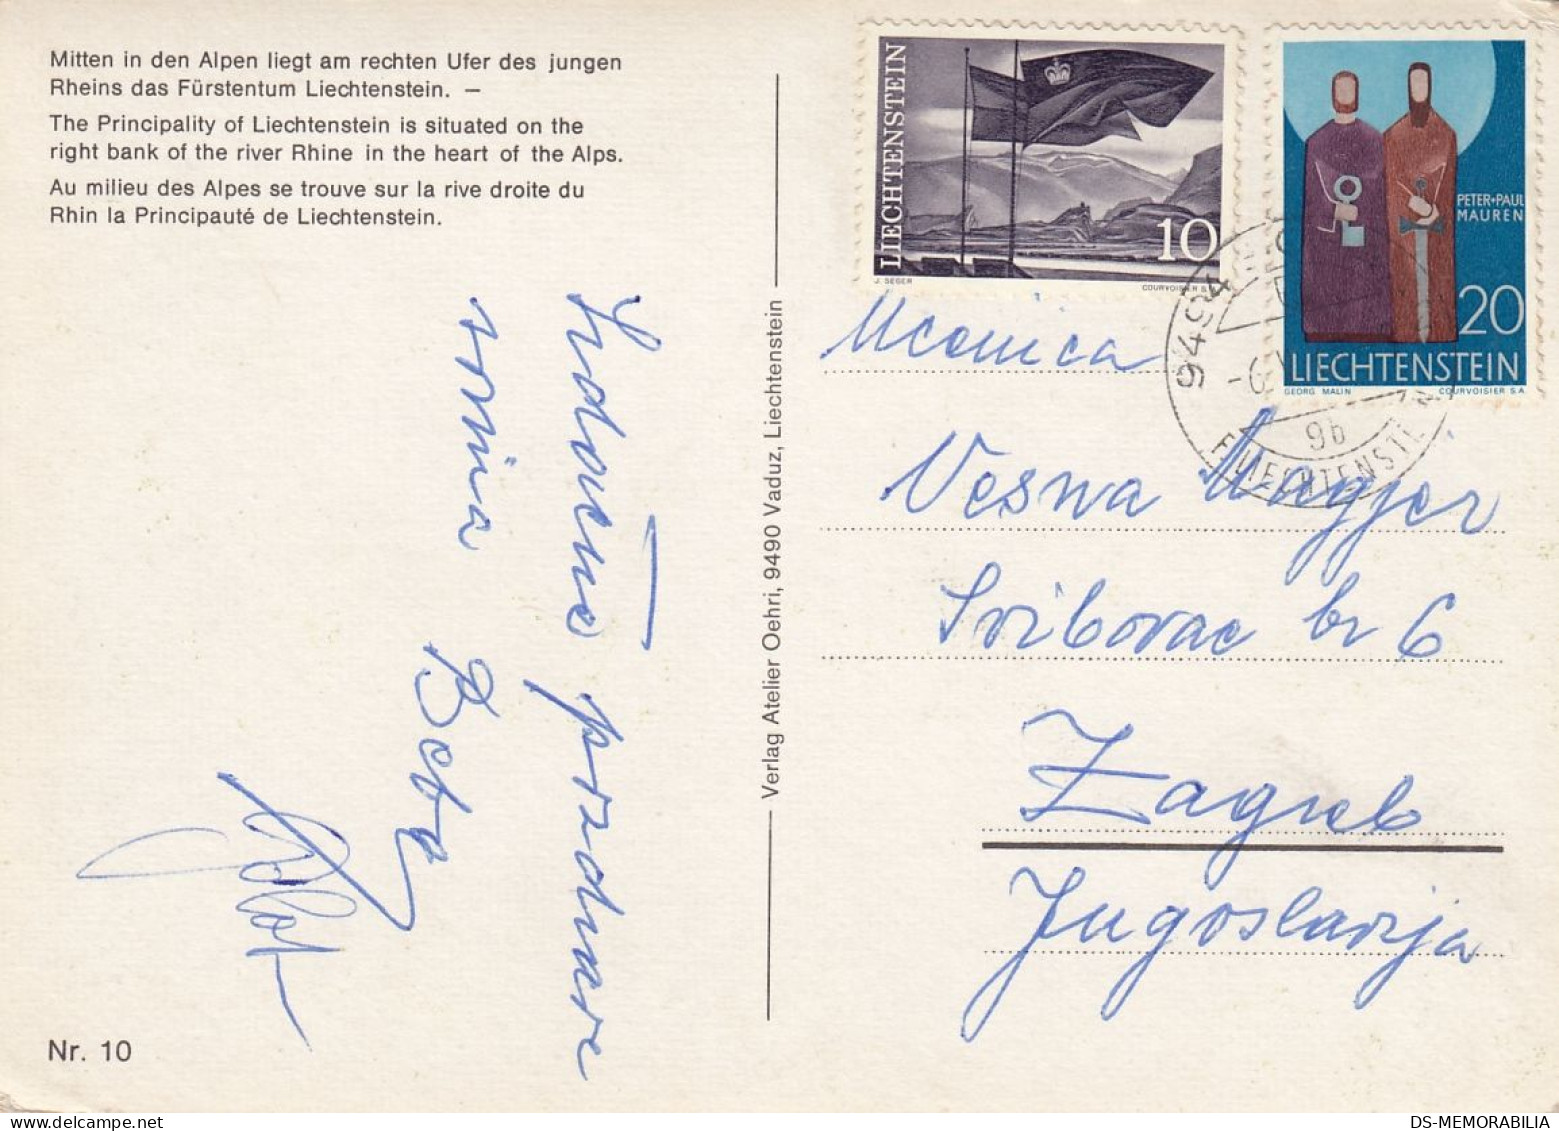 Mitten in den Alpen liegt am rechten Ufer des jungen
Rheins das Fürstentum Liechtenstein. —
The Principality of Liechtenstein is situated on the
right bank of the river Rhine in the heart of the Alps.
Au milieu des Alpes se trouve sur la rive droite du
Rhin la Principauté de Liechtenstein.
Srdačne pozdrave
Beba
Nr. 10
Verlag Atelier Oehri, 9490 Vaduz, Liechtenstein
LIECHTENSTEIN
10
J. SEGER
COURVOISIER S.A.
PETER+PAUL
MAUREN
20
LIECHTENSTEIN
GEORG MALIN
COURVOISIER S.A.
9494
9b
LIECHTENSTEIN
Ucenica
Vesna Magjer
Sribovac br 6
Zagreb
Jugoslavija
DS-MEMORABILIA